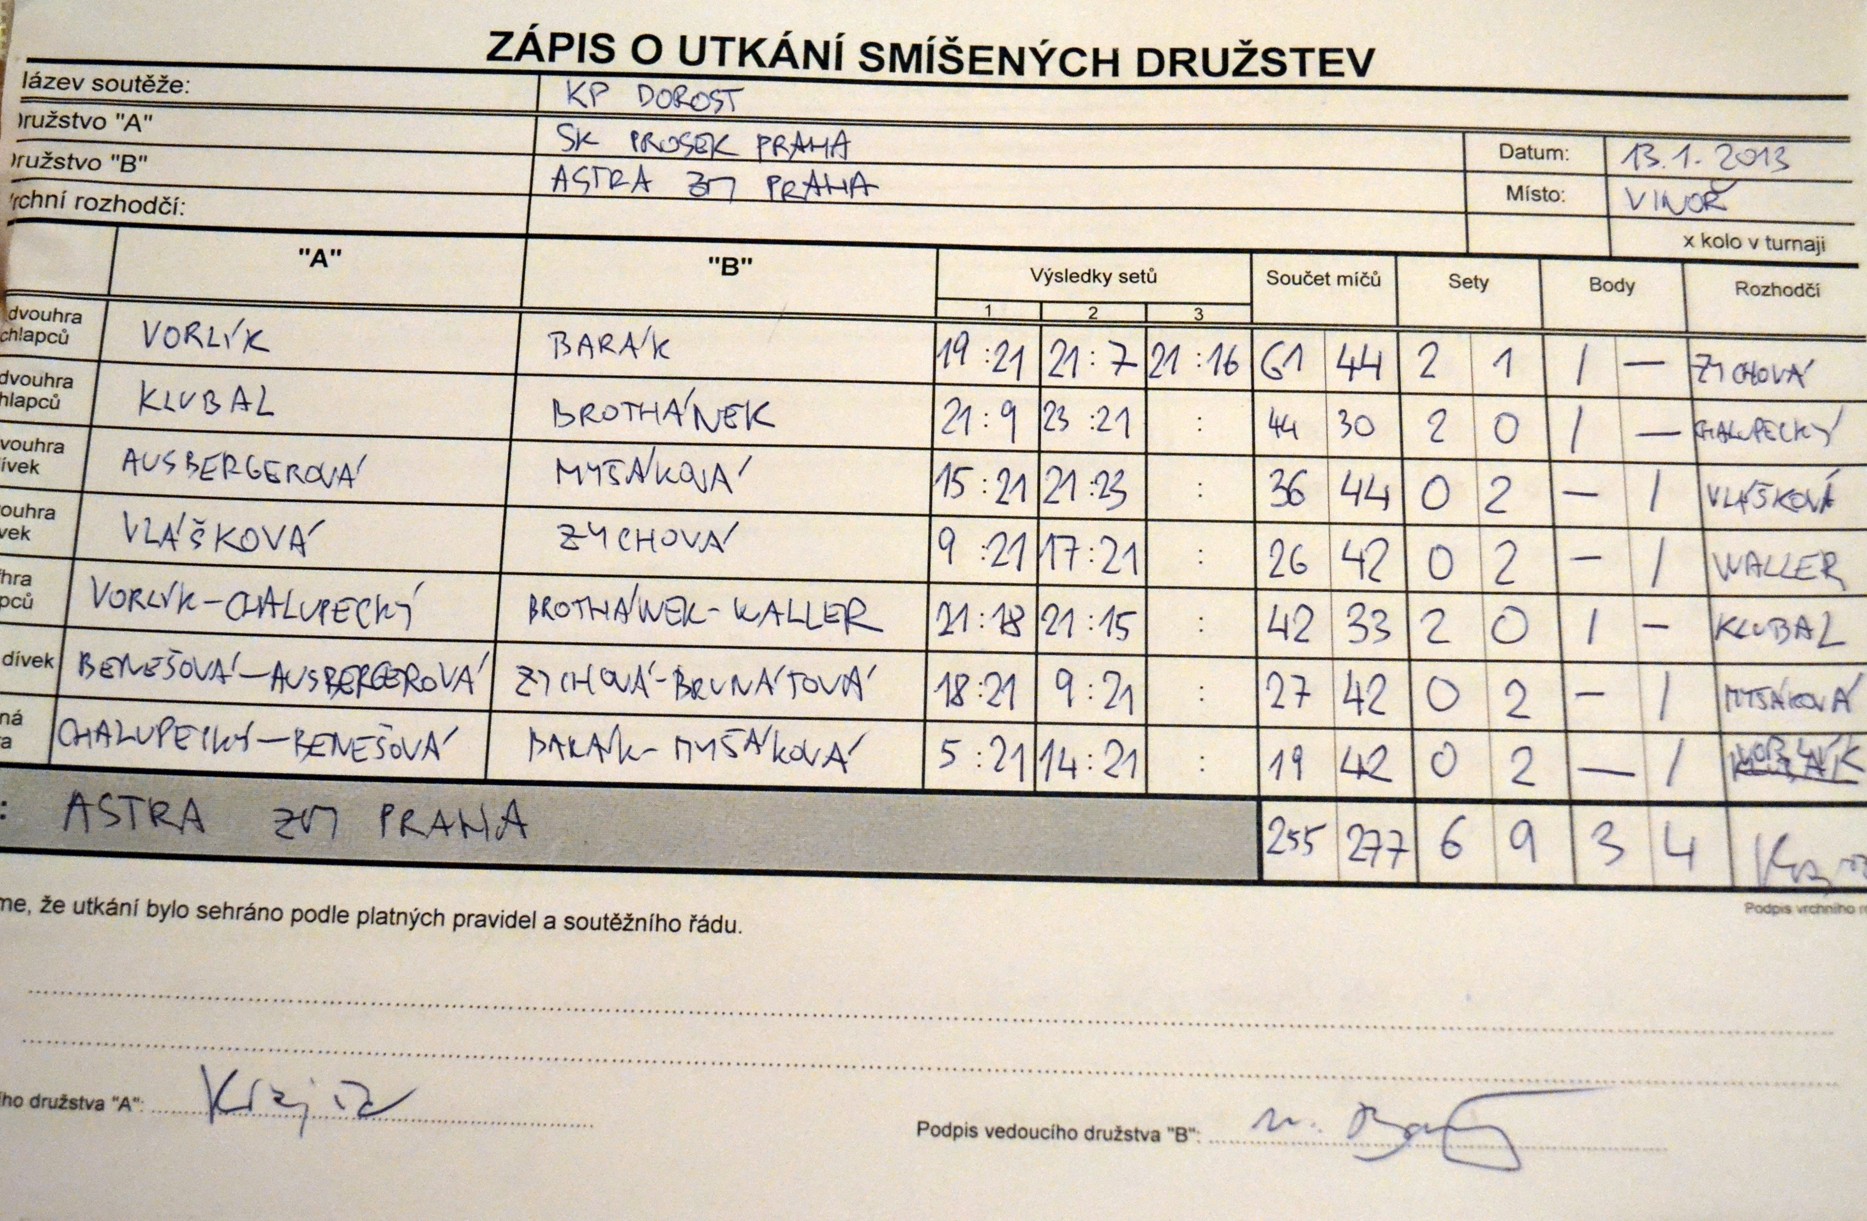 ZÁPIS O UTKÁNÍ SMÍŠENÝCH DRUŽSTEV
lázev soutěže: KP DOROST
družstvo "A" SK PROSEK PRAHA Datum: 13.1.2013
družstvo "B" ASTRA ZM PRAHA Místo: VINOŘ
rchní rozhodčí: x kolo v turnaji
"A" "B" Výsledky setů Součet míčů Sety Body Rozhodčí
1 2 3
dvouhra chlapců VORLÍK BARÁK 19:21 21:7 21:16 61 44 2 1 1 — ZYCHOVÁ
dvouhra hlapců KLUBAL BROTHÁNEK 21:9 23:21 : 44 30 2 0 1 — CHALUPECKÝ
vouhra ívek AUSBERGEROVÁ MYŠÁKOVÁ 15:21 21:23 : 36 44 0 2 — 1 VLÁŠKOVÁ
ouhra vek VLÁŠKOVÁ ZYCHOVÁ 9:21 17:21 : 26 42 0 2 — 1 WALLER
hra pců VORLÍK-CHALUPECKÝ BROTHÁNEK-WALLER 21:18 21:15 : 42 33 2 0 1 — KLUBAL
dívek BENEŠOVÁ-AUSBERGEROVÁ ZYCHOVÁ-BRUNÁTOVÁ 18:21 9:21 : 27 42 0 2 — 1 MYŠÁKOVÁ
ná a CHALUPECKÝ-BENEŠOVÁ BARÁK-MYŠÁKOVÁ 5:21 14:21 : 19 42 0 2 — 1 VORLÍK
: ASTRA ZM PRAHA 255 277 6 9 3 4
Podpis vrchního
me, že utkání bylo sehráno podle platných pravidel a soutěžního řádu.
ího družstva "A":
Podpis vedoucího družstva "B":